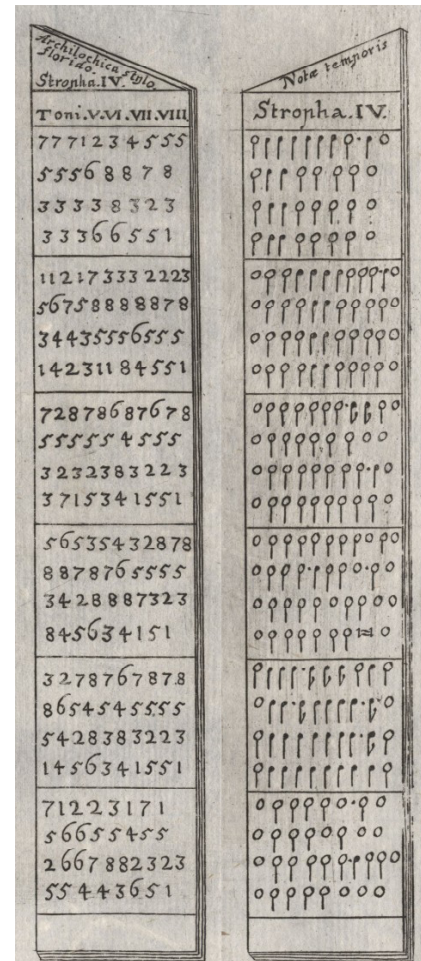 Archilochica stylo
florido.
Stropha.IV.
Toni.V.VI.VII.VIII
7 7 7 1 2 3 4 5 5 5
5 5 5 6 8 8 7 8
3 3 3 3 8 3 2 3
3 3 3 6 6 5 5 1
1 1 2 1 7 3 3 3 2 2 2 3
5 6 7 5 8 8 8 8 8 8 7 8
3 4 4 3 5 5 5 6 5 5 5
1 4 2 3 1 1 8 4 5 5 1
7 2 8 7 8 6 8 7 6 7 8
5 5 5 5 5 4 5 5 5
3 2 3 2 3 8 3 2 2 3
3 7 1 5 3 4 1 5 5 1
5 6 5 3 5 4 3 2 8 7 8
8 8 7 8 7 6 5 5 5 5
3 4 2 8 8 8 7 3 2 3
8 4 5 6 3 4 1 5 1
3 2 7 8 7 6 7 8 7 8
8 6 5 4 5 4 5 5 5 5
5 4 2 8 3 8 3 2 2 3
1 4 5 6 3 4 1 5 5 1
7 1 2 2 3 1 7 1
5 6 6 5 5 4 5 5
2 6 6 7 8 8 2 3 2 3
5 5 4 4 3 6 5 1
Notæ temporis
Stropha.IV.